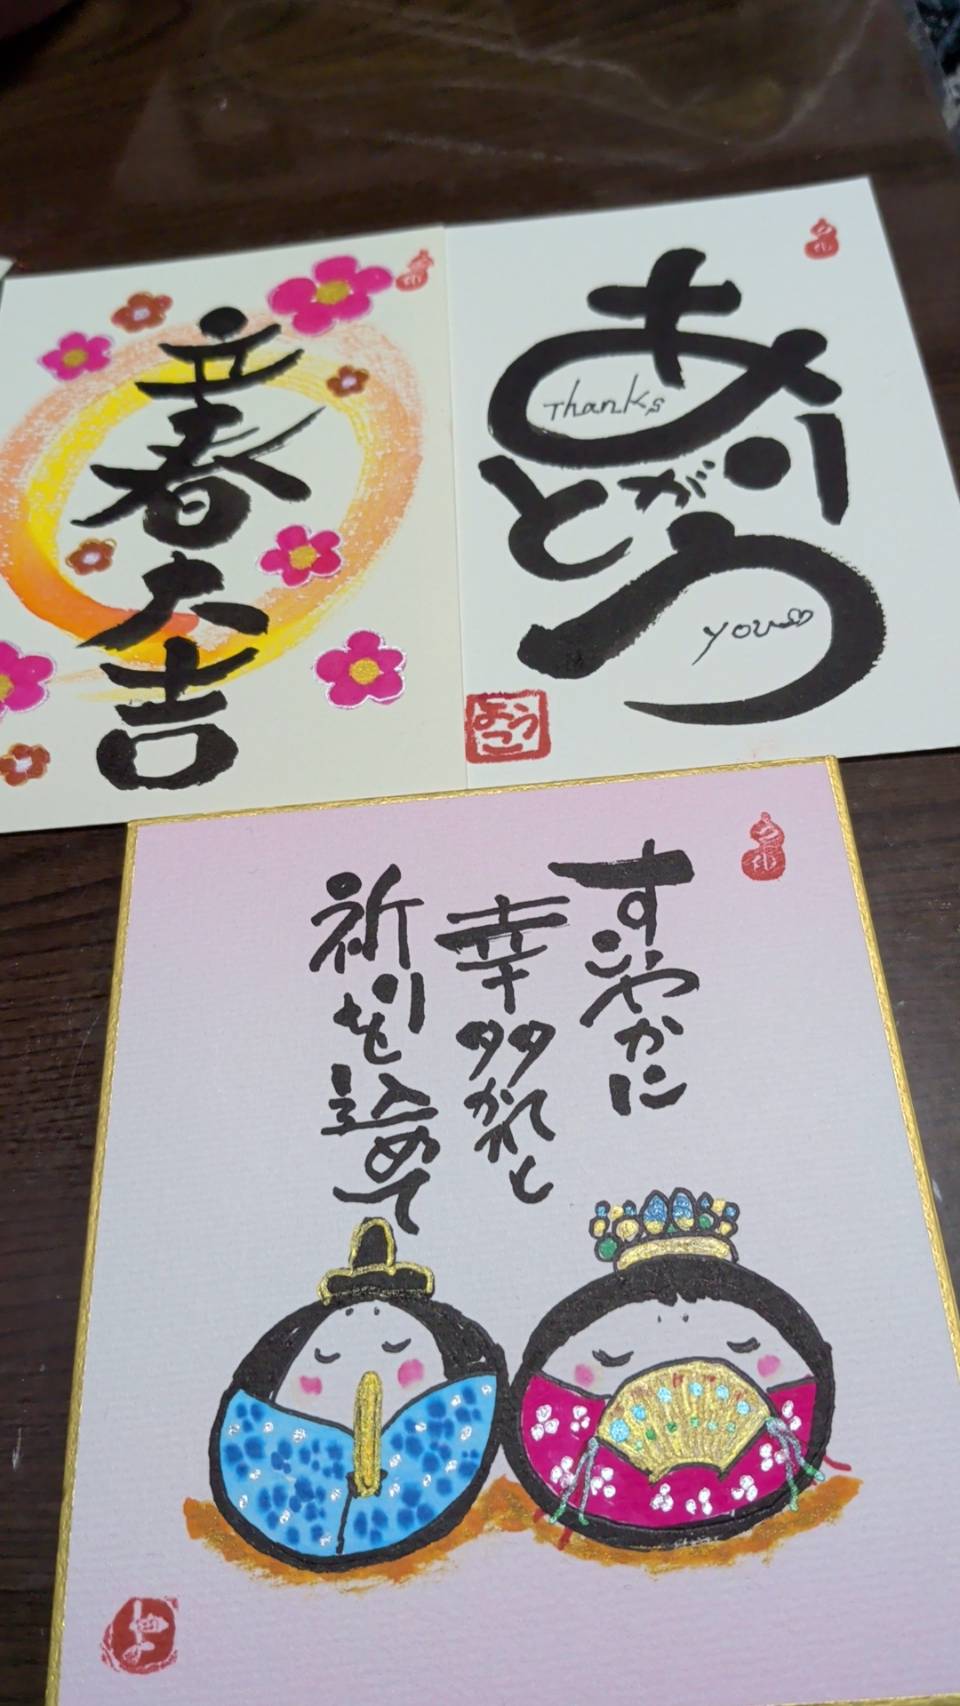 立春大吉
ありがとう
Thanks
you
ようこ
すこやかに
幸多かれと
祈りを込めて
よ